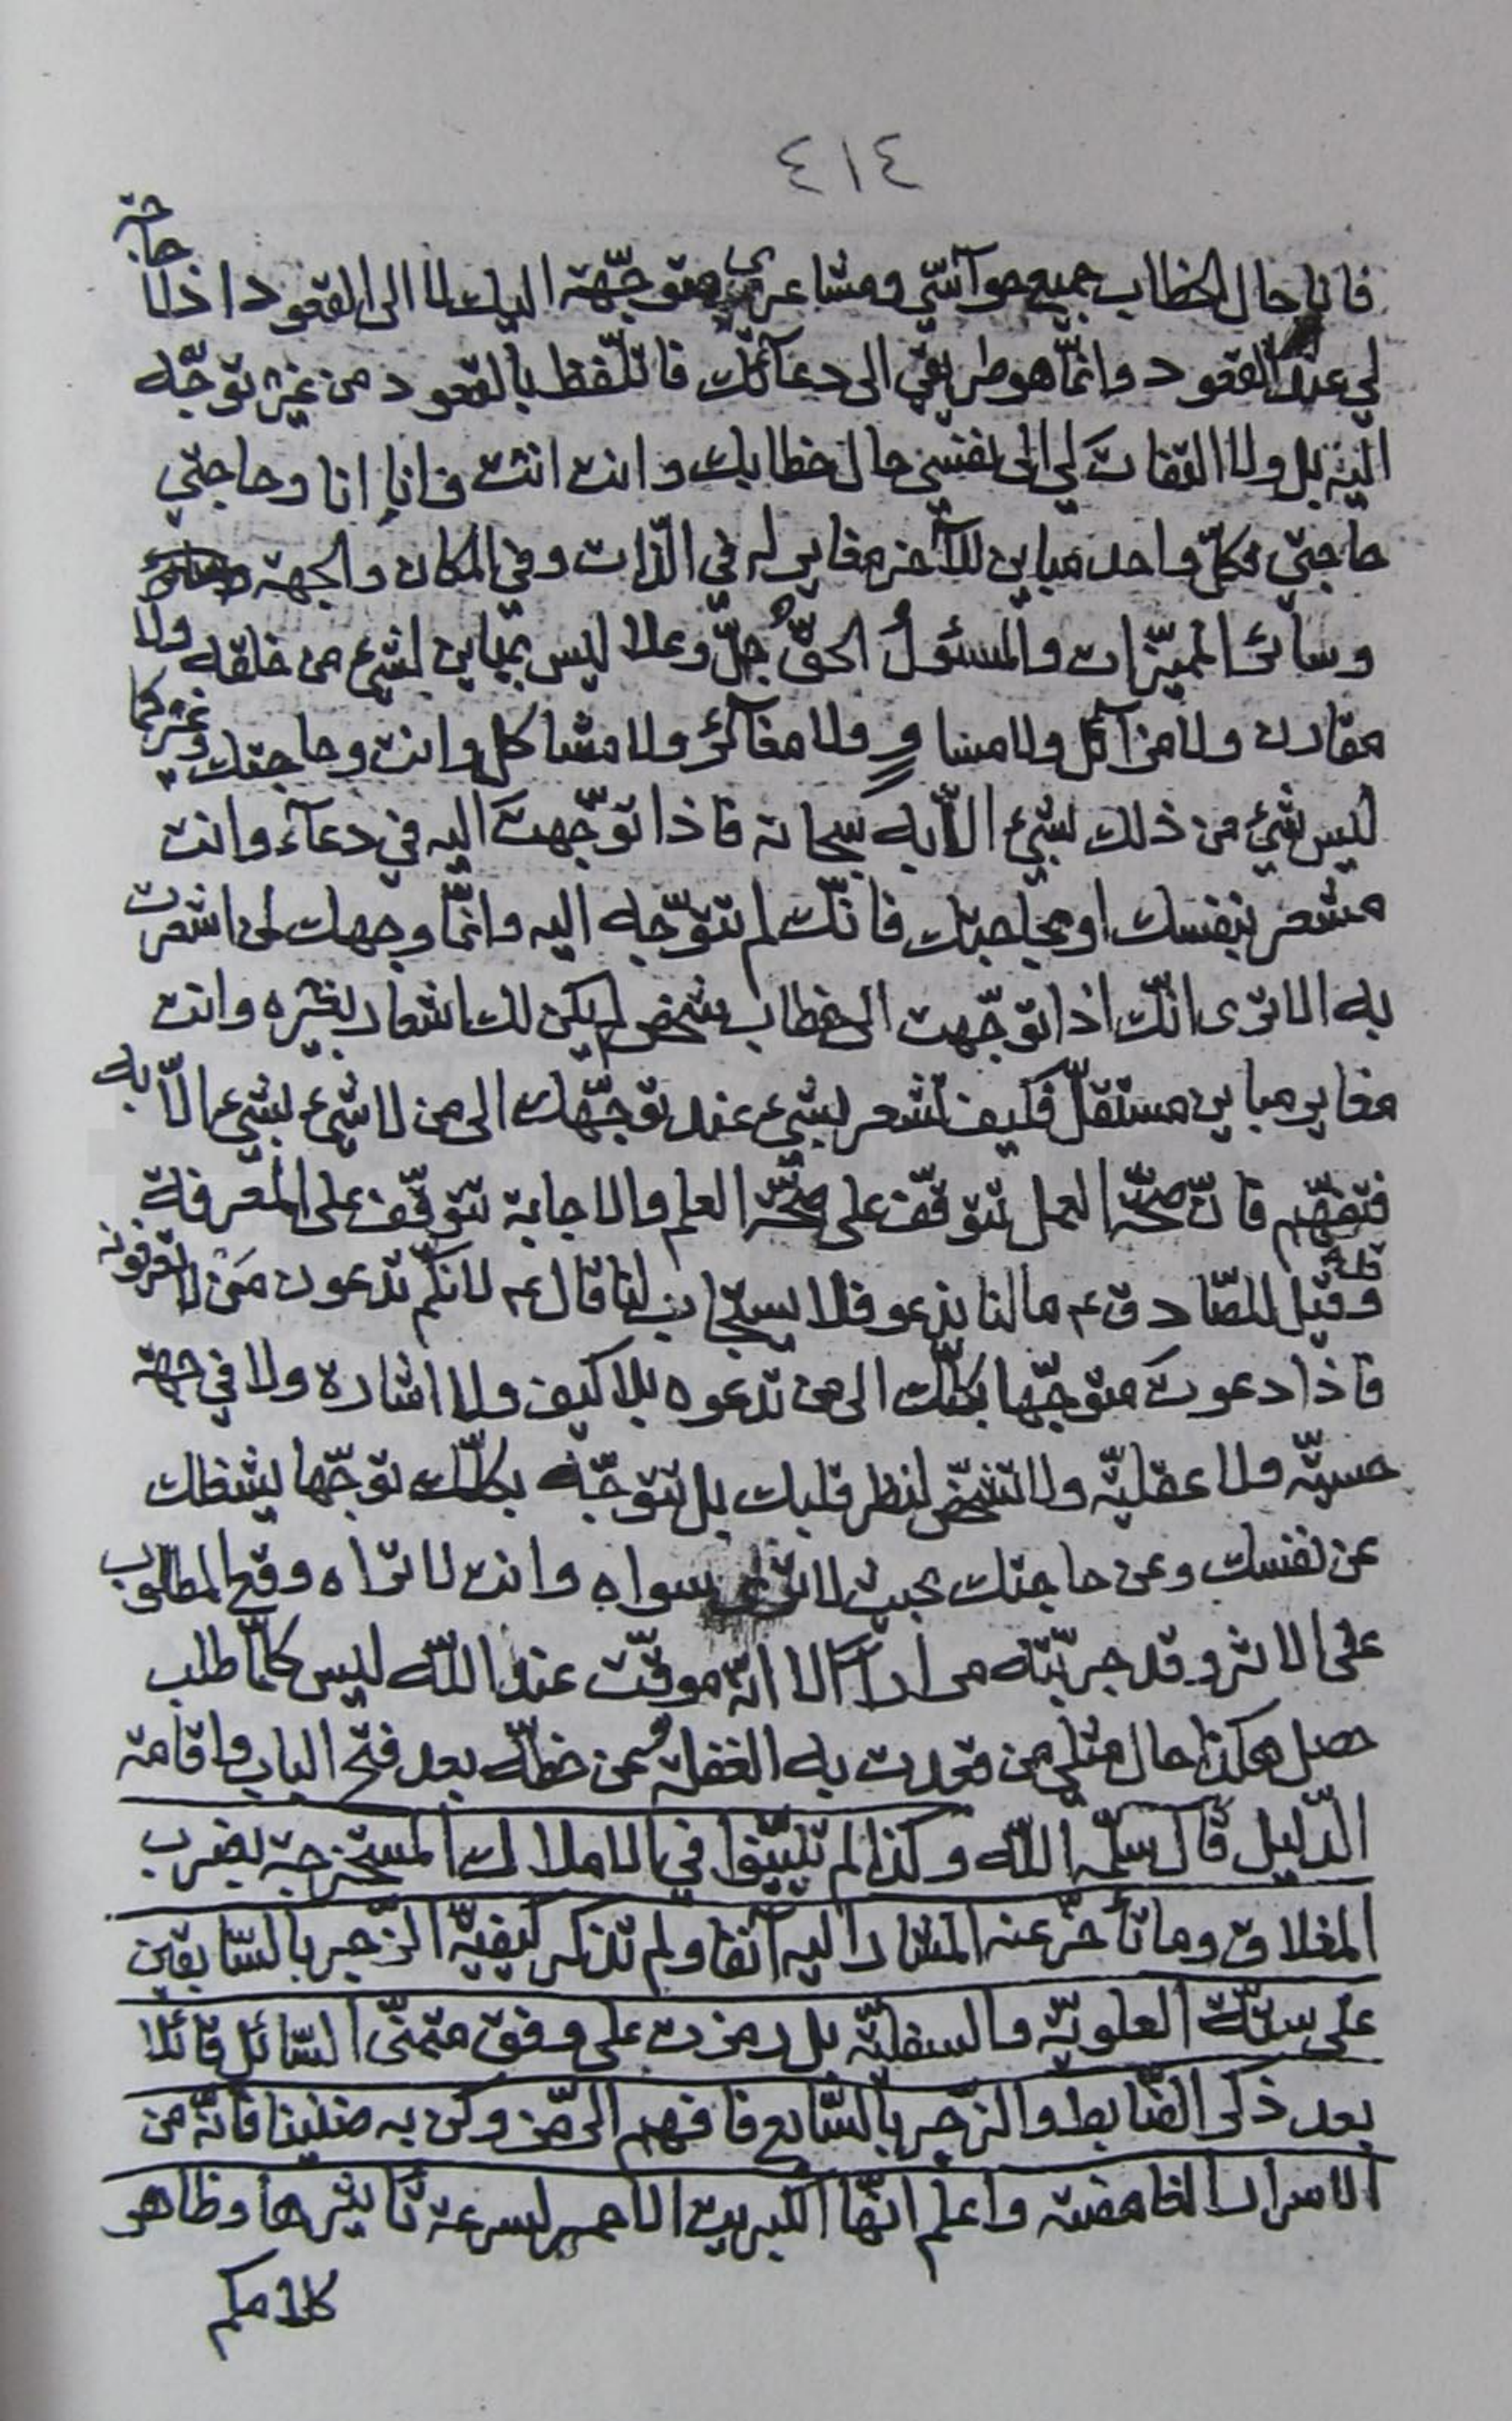 ٤١٤
فانا حال الخطاب جميع حوآسّي ومشاعري متوجّهة اليك لا الى القعود اذ لا حاجة
لي عند القعود وانّما هو طريقي الى دعآئك فاتلّفظ بالقعود من غير توجّه
اليه بل ولا التفات لي الى نفسي حال خطابك وانت انت فانا انا وحاجتي
حاجتي فكلّ واحد مباين للآخر مغاير له في الذّات وفي المكان والجهة
وسائر المميّزات والمسئولُ الحقُّ جلّ وعلا ليس بمباين لشيء من خلقه ولا
مقارن ولا مزآئل ولا مساوٍ ولا مغآئر ولا مشاكل وانت وحاجتك وغيركما
ليس شيء من ذلك لشيء الّا به سبحانه فاذا توّجهت اليه في دعآء وانت
مشعر بنفسك او بحاجتك فانّك لم تتوّجه اليه وانّما وجهك لما اشعرت
به الا ترى انّك اذا توجّهت الى خطاب شخص لم يكن لك اشعار بغيره وانت
مغاير مباين مستقلّ فكيف تشعر بشيء عند توجّهك الى من لا شيء لشيء الّا به
فتفهّم فانّ صحّة العمل تتوقّف على صحّة العلم والاجابة تتوقّف على المعرفة
وقد قيل للصّادق ع ما لنا ندعو فلا يستجاب لنا قال ع لانكّم تدعون مَن لا تعرفونه
فاذا دعوت متوجّها بكلّك الى من تدعوه بلا كيف ولا اشارة ولا في جهة
حسيّة ولا عقليّة ولا تشخّص لنظر قلبك بل تتوجّه بكلّك توجّها يشغلك
عن نفسك وعن حاجتك بحيث لا ترى سواه وانت لا تراه وقع المطلوب
على الاثر وقد جربّته مرارا الا انّه موقّت عند الله ليس كلّما طلب
حصل هكذا حال مثلي من قعدت به الغفلة عن حظّه بعد فتح الباب واقامة
الدّليل قال سلّمه الله وكذا لم تبيّنوا في الاملاك المستخرجة بضرب
المغلاق وما تأخّر عنه المشار اليه آنفا ولم تذكر كيفيّة الزّجر بالسّابقين
على ستّة العلويّة والسفليّة بل رمزت على وفق متمنّى السّائل قائلا
بعد ذكر الضّابط والزّجر بالسّابع فافهم الرّمز وكن به ضنينا فانّه من
الاسرار الغامضة واعلم انّها الكبريت الاحمر لسرعة تأثيرها وظاهر
كلامكم